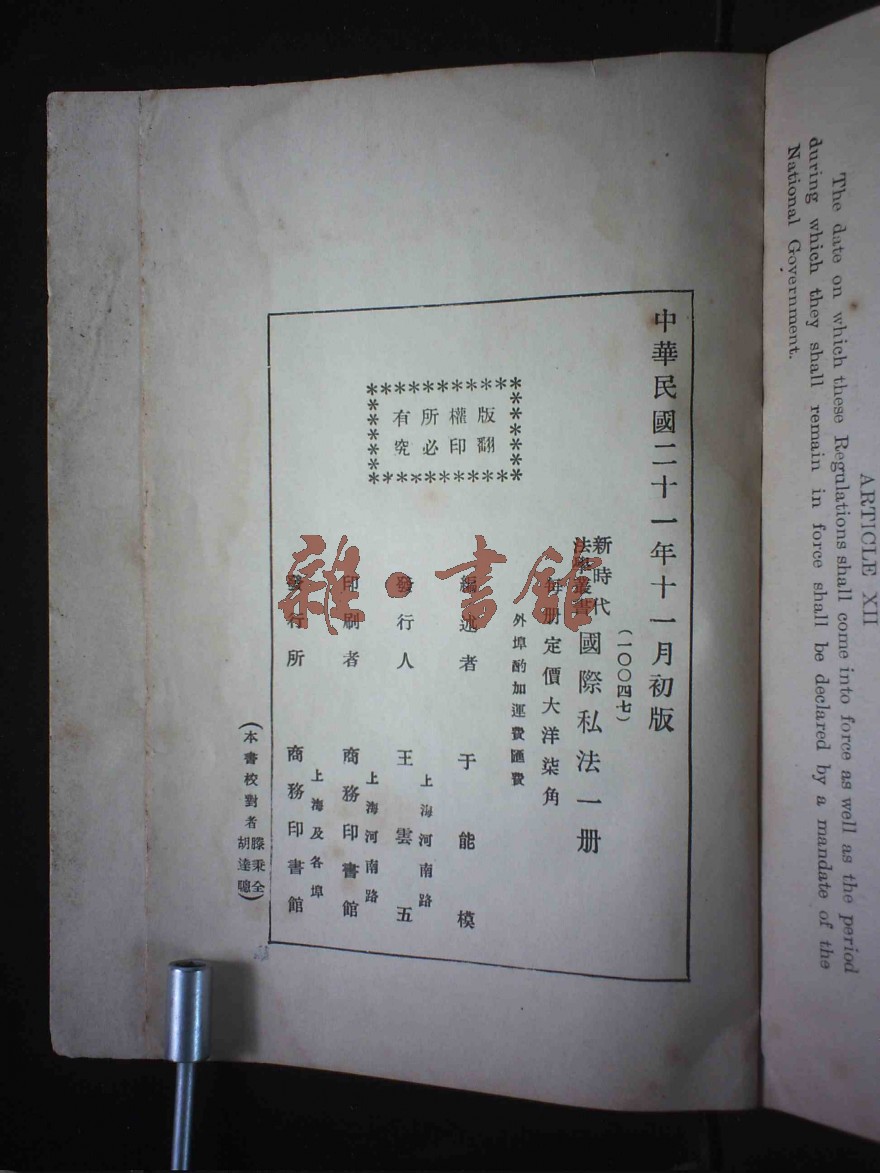 中華民國二十一年十一月初版
(一〇〇四七)
新時代
法學叢書
國際私法一册
每册定價大洋柒角
外埠酌加運費匯費
版權所有
翻印必究
編述者 于能模
發行人 王雲五
上海河南路
印刷者 商務印書館
上海河南路
發行所 商務印書館
上海及各埠
(本書校對者 滕秉全
胡達聰)
ARTICLE XII
The date on which these Regulations shall come into force as well as the period
during which they shall remain in force shall be declared by a mandate of the
National Government.
雜·書館